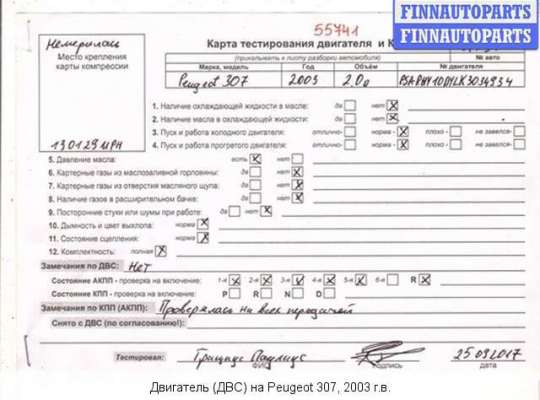 55741
FINNAUTOPARTS
FINNAUTOPARTS
Немерилась
Место крепления
карты компрессии
Карта тестирования двигателя и К
(прикалывать к листу разборки автомобиля)
№ авто
Марка, модель
Год
Объём
№ двигателя
Peugeot 307
2003
2.0
130129МРН
1. Наличие охлаждающей жидкости в масле: да нет X
2. Наличие масла в охлаждающей жидкости: да нет X
3. Пуск и работа холодного двигателя: отлично- норма - X плохо - не завелся-
4. Пуск и работа прогретого двигателя: отлично- норма - X плохо - не завелся-
5. Давление масла: есть X нет
6. Картерные газы из маслозаливной горловины: да нет X
7. Картерные газы из отверстия масляного щупа: да нет X
8. Наличие газов в расширительном бачке: да нет X
9. Посторонние стуки или шумы при работе: да нет X
10. Дымность и цвет выхлопа: норма X
11. Состояние сцепления: норма X
12. Комплектность: полная X
Замечания по ДВС: Нет
Состояние АКПП - проверка на включение: 1-я X 2-я X 3-я X 4-я X 5-я X 6-я R X
Состояние КПП - проверка на включение: P R N D
Замечания по КПП (АКПП): Проверялась на всех передачах
Снято с ДВС (по согласованию!):
Тестировал: Грицюс Паулиус 25 09 2017
ФИО подпись
Двигатель (ДВС) на Peugeot 307, 2003 г.в.